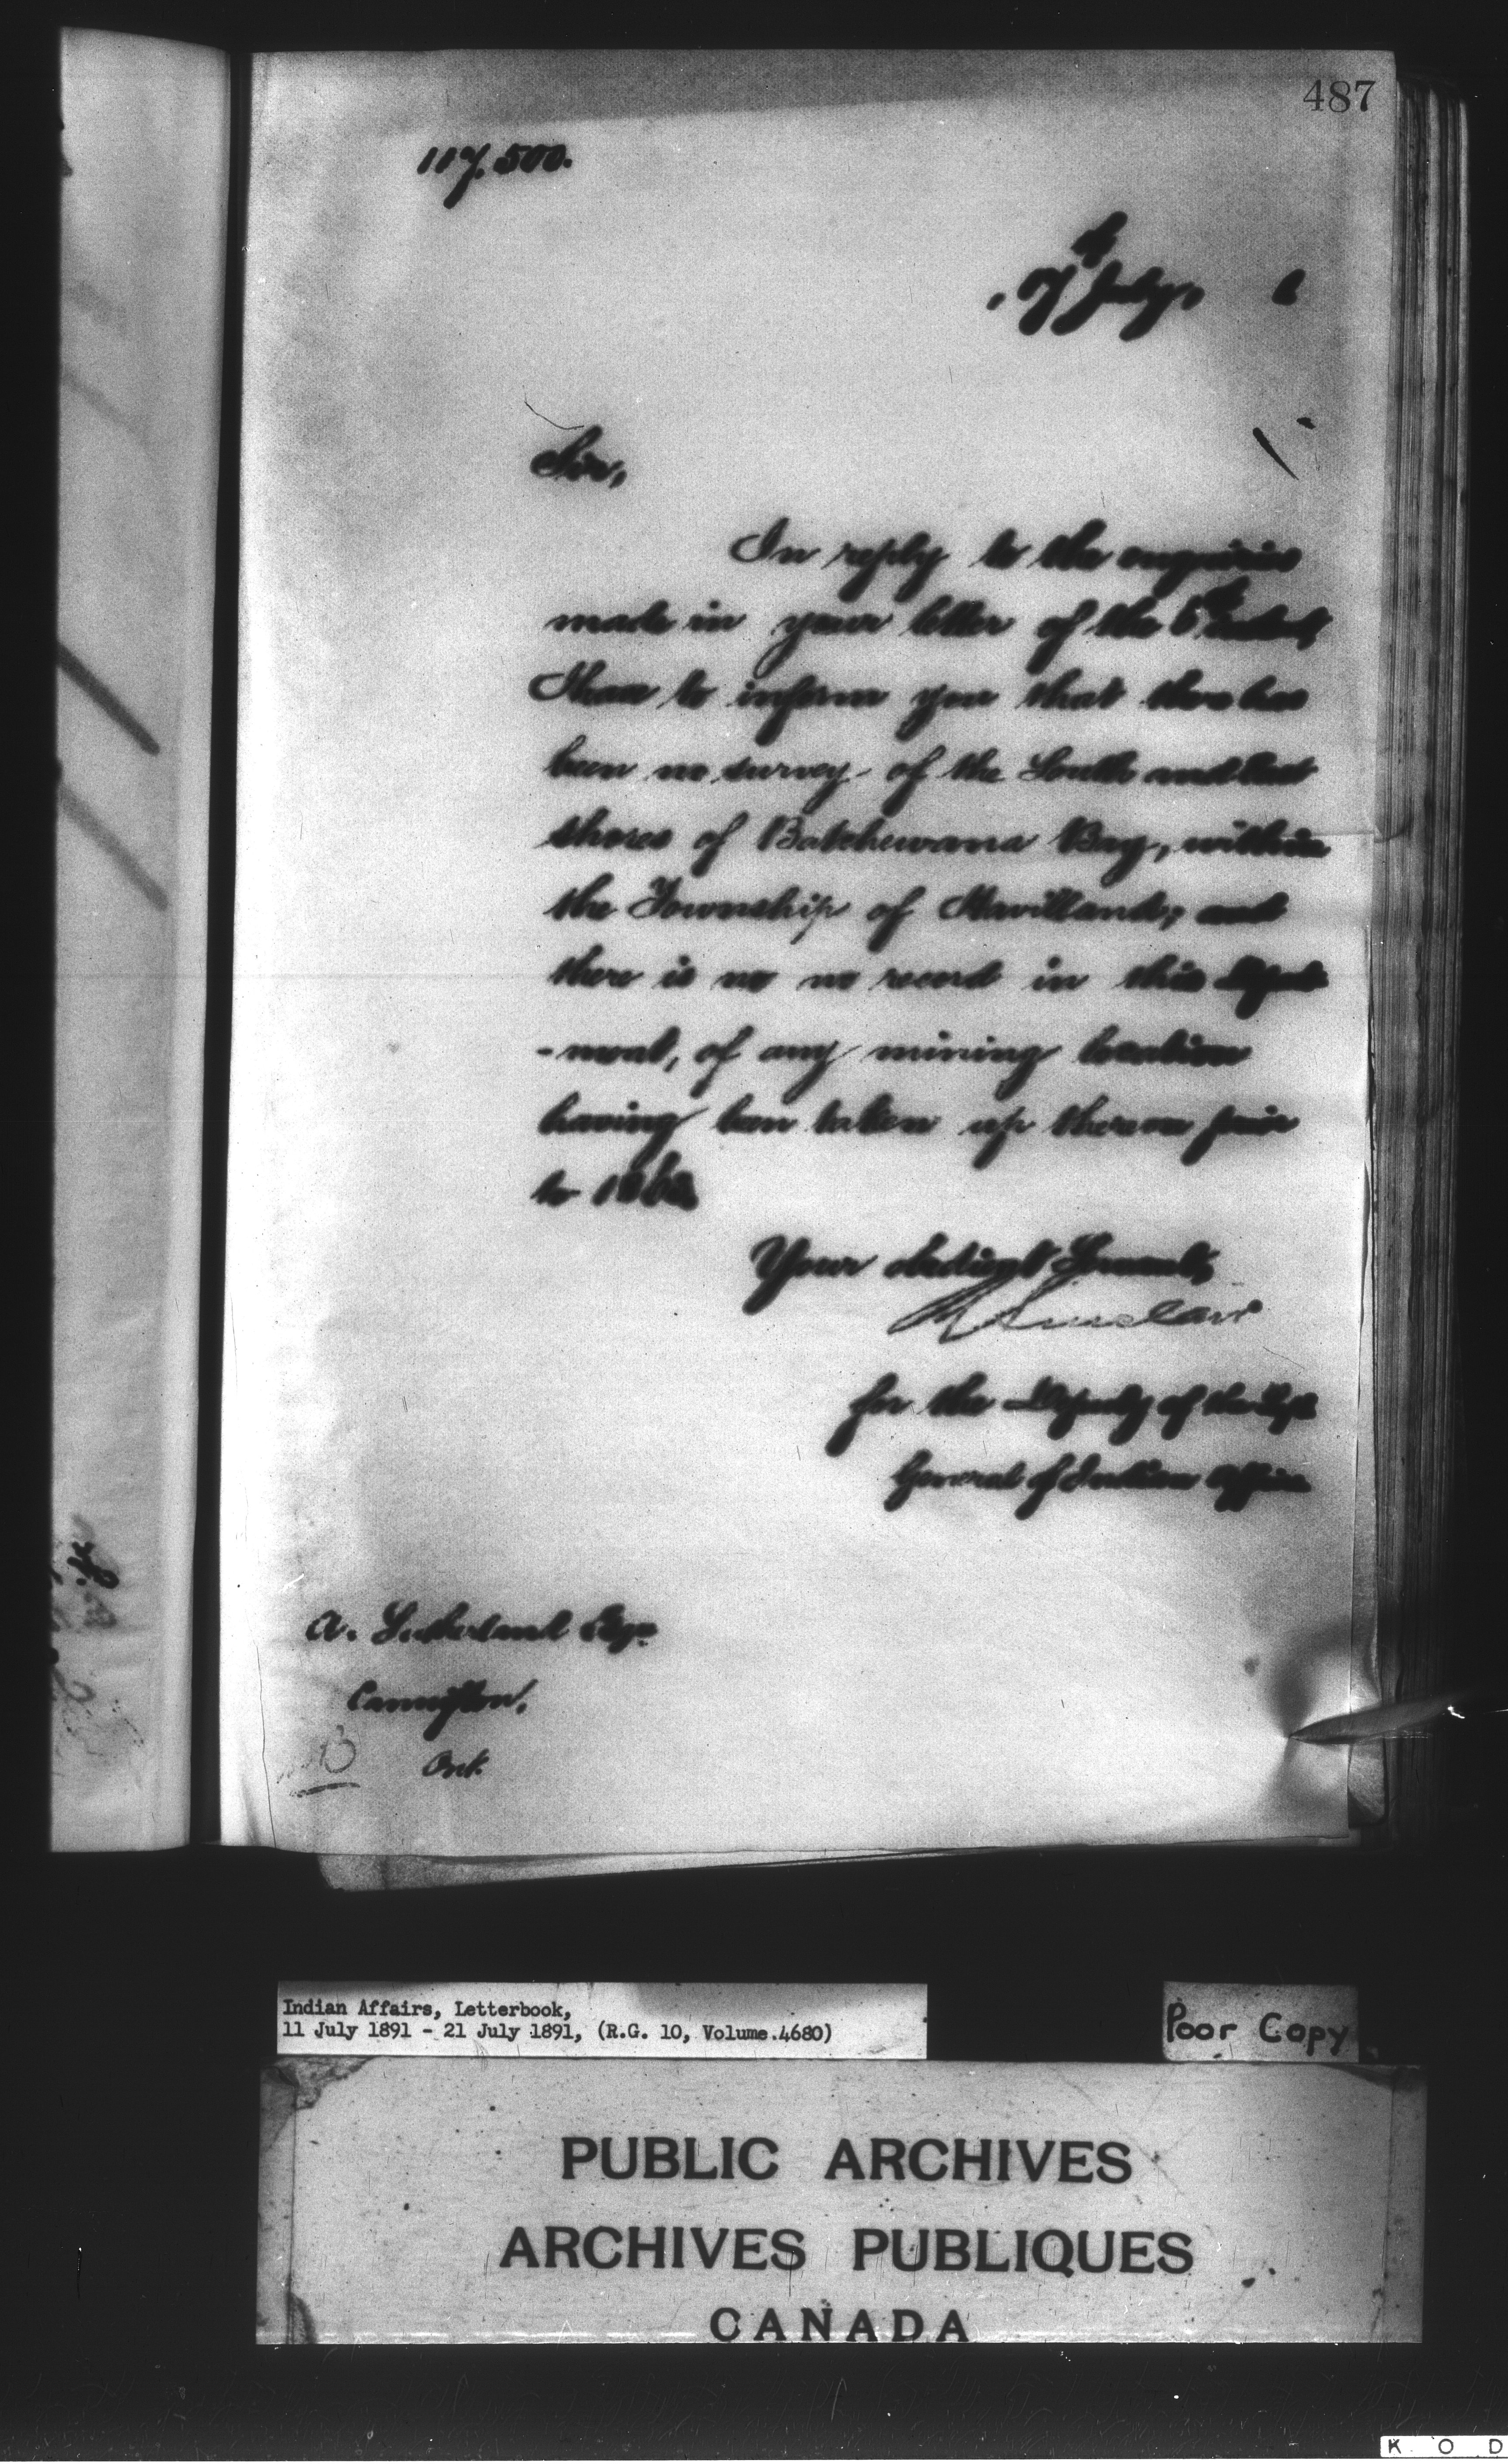 487
117.500.
July,
Sir,
In reply to the enquiries
made in your letter of the 6th
I have to inform you that there has
been no survey of the South and East
shores of Batchewana Bay, within
the Township of Havilland; and
there is no no record in this Depart
-ment, of any mining location
having been taken up thereon prior
to
Your obedient Servant,
Sinclair
for the Deputy of the Supt
General of Indian Affairs
A. Sutherland Esqr
Cannifton,
Ont.
Indian Affairs, Letterbook,
11 July 1891 - 21 July 1891, (R.G. 10, Volume.4680)
Poor Copy
PUBLIC ARCHIVES
ARCHIVES PUBLIQUES
CANADA
K O D